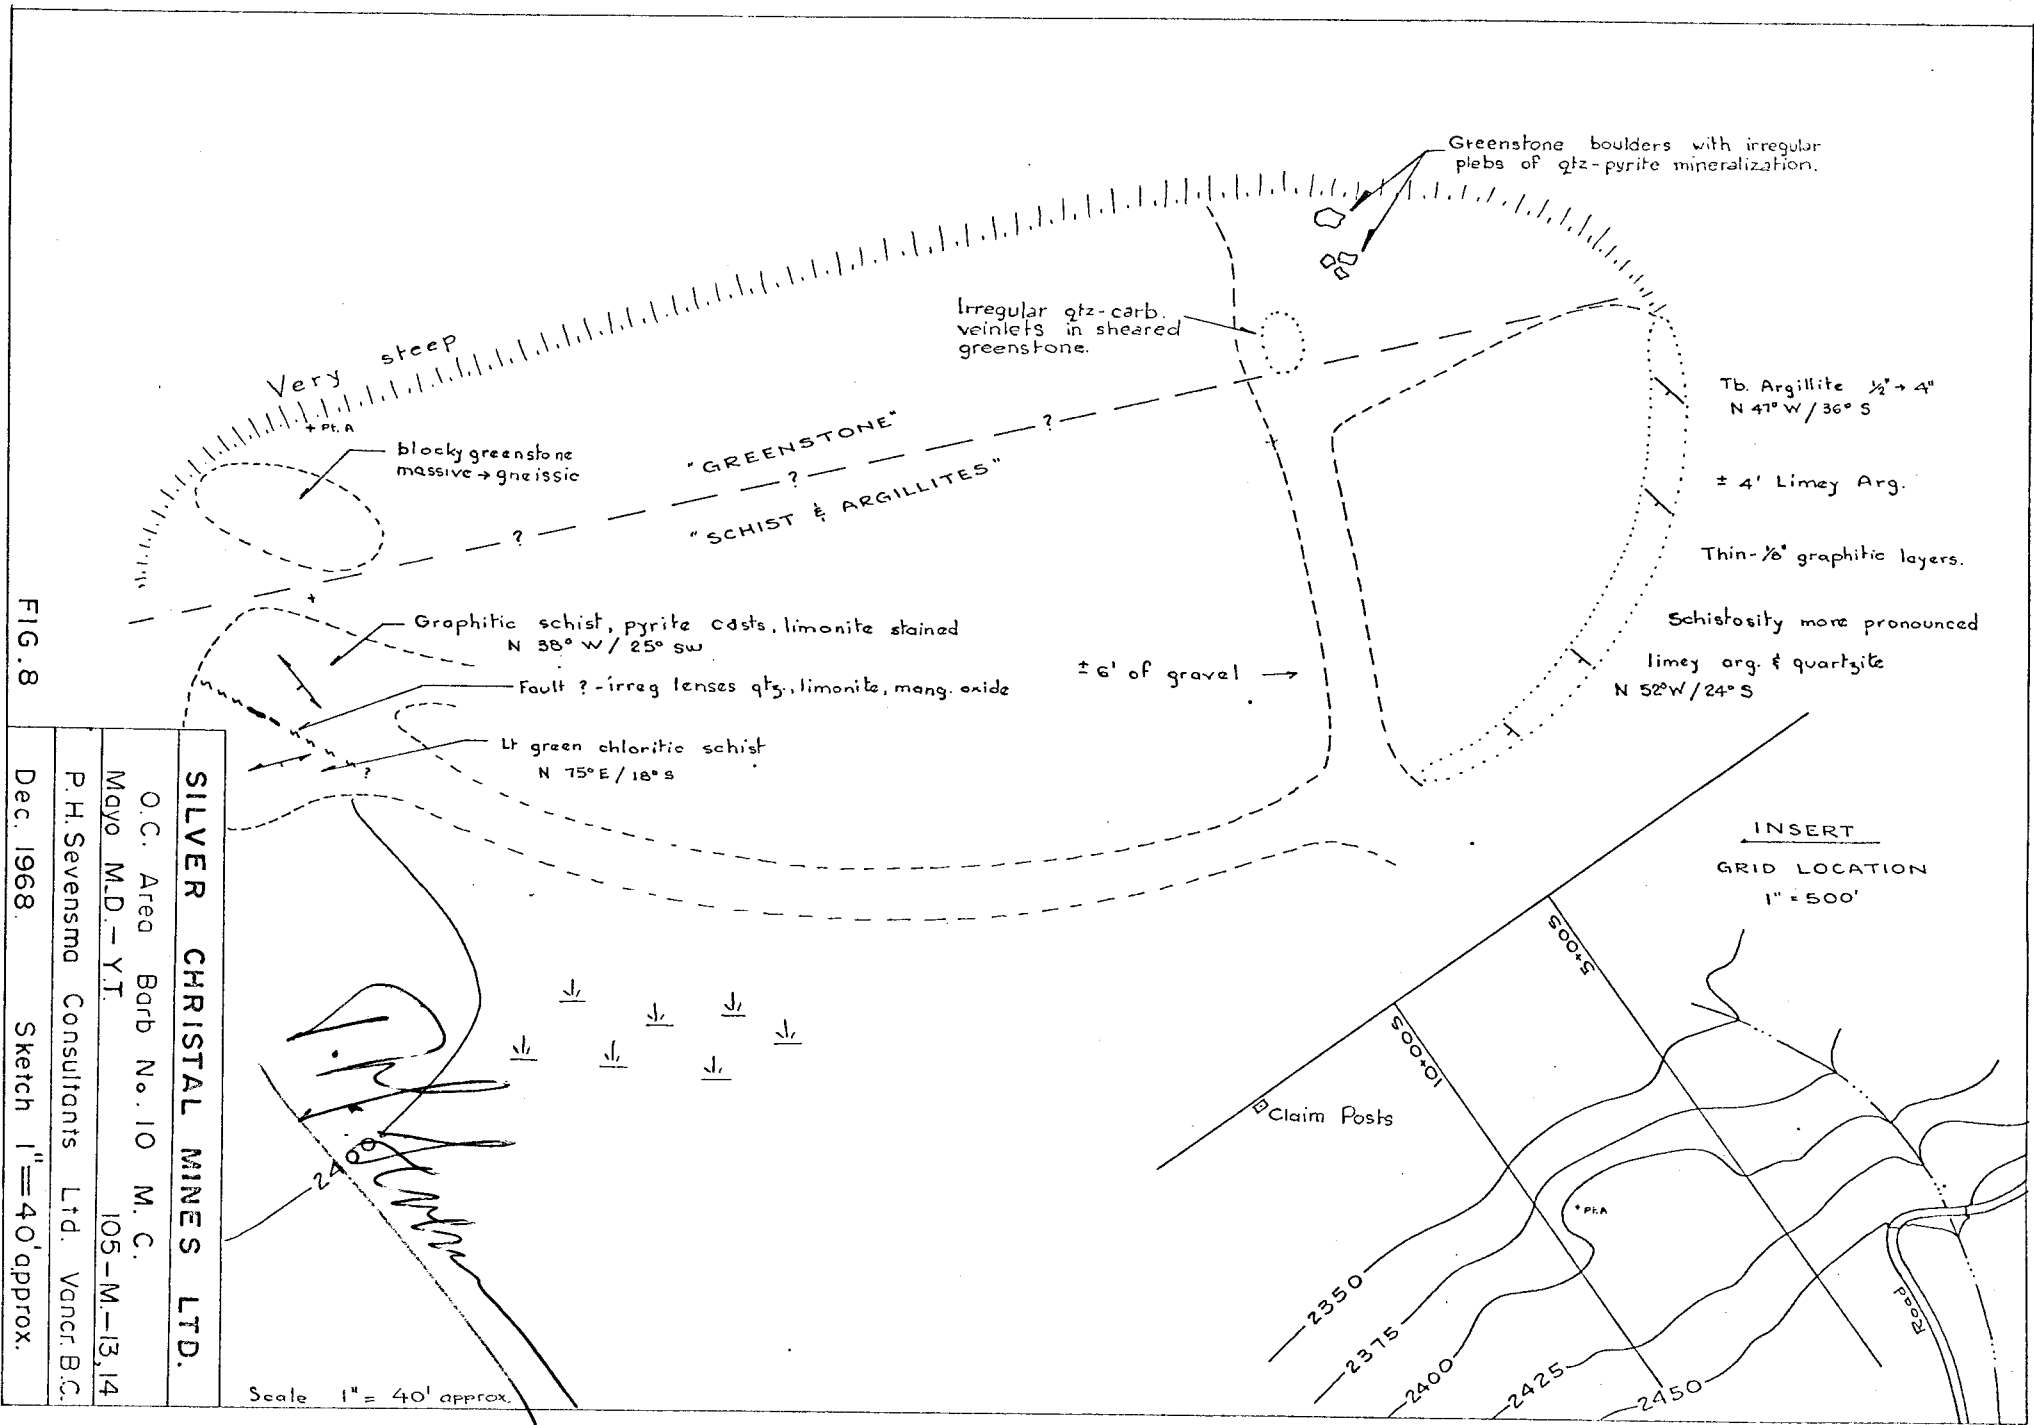 Greenstone boulders with irregular
plebs of qtz-pyrite mineralization.
Very steep
+ Pt. A
blocky greenstone
massive → gneissic
Irregular qtz-carb.
veinlets in sheared
greenstone.
"GREENSTONE"
"SCHIST & ARGILLITES"
?
?
?
Tb. Argillite ½" → 4"
N 47° W / 36° S
± 4' Limey Arg.
Thin-⅛" graphitic layers.
Schistosity more pronounced
limey arg. & quartzite
N 52° W / 24° S
Graphitic schist, pyrite casts, limonite stained
N 38° W / 25° SW
Fault ? - irreg lenses qtz., limonite, mang. oxide
Lt green chloritic schist
N 75° E / 18° S
?
± 6' of gravel →
INSERT
GRID LOCATION
1" = 500'
5+00S
10+00S
Claim Posts
+ Pt. A
2350
2375
2400
2425
2450
Road
2400
Scale 1" = 40' approx.
FIG. 8
SILVER CHRISTAL MINES LTD.
O.C. Area Barb No. 10 M. C.
Mayo M.D. - Y.T. 105-M-13,14
P.H. Sevensma Consultants Ltd. Vancr. B.C.
Dec. 1968. Sketch 1"=40' approx.